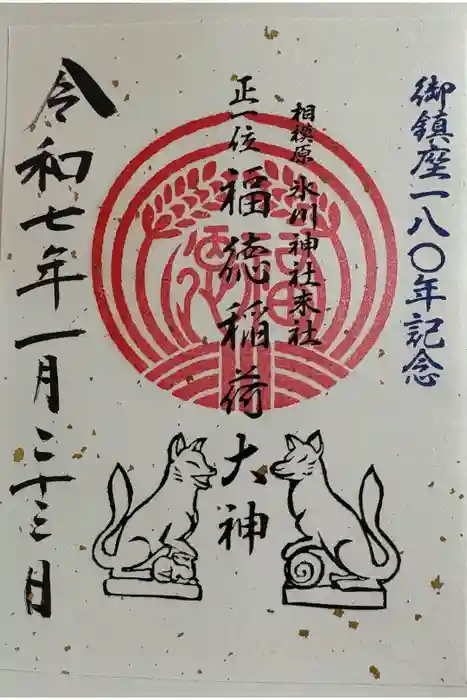 御鎮座一八〇年記念
相模原 氷川神社末社
正一位 福徳稲荷大神
福徳
令和七年一月二十三日